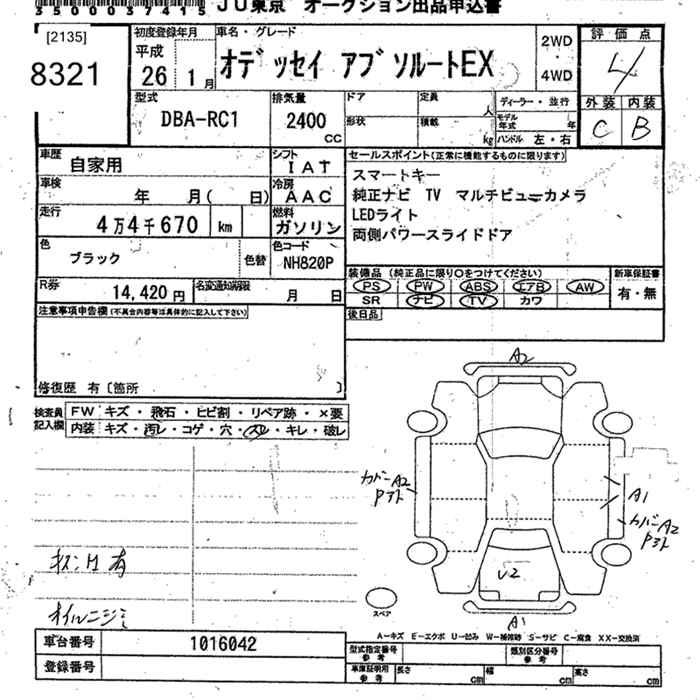 3500037415 JU東京 オークション出品申込書
[2135]
8321
初度登録年月
平成
26 1月
車名・グレード
オデッセイ アブソルートEX
2WD
・
4WD
評価点
4
外装 内装
C B
型式
DBA-RC1
排気量
2400
CC
ドア
定員
人
形状
積載
kg
ディーラー・並行
モデル年式 年
ハンドル 左・右
車歴
自家用
シフト
IAT
車検
年 月( 日)
冷房
AAC
走行
4万4千670 km
燃料
ガソリン
色
ブラック
色替
色コード
NH820P
R券
14,420円
名変通知期限
月 日
セールスポイント(正常に機能するものに限ります)
スマートキー
純正ナビ TV マルチビューカメラ
LEDライト
両側パワースライドドア
装備品 (純正品に限り○をつけてください)
PS PW ABS エアB AW
SR ナビ TV カワ
新車保証書
有・無
後日品
注意事項申告欄(不具合内容等は具体的に記入して下さい)
修復歴 有〔箇所 〕
検査員
記入欄
FW キズ・飛石・ヒビ割・リペア跡・×要
内装 キズ・汚レ・コゲ・穴・スレ・キレ・破レ
A2
カバーA2
Pアト
A1
カバーA2
Pアト
U2
A1
スペア
オイルニジミ
A－キズ E－エクボ U－凹み W－補修跡 S－サビ C－腐食 XX－交換済
車台番号
1016042
登録番号
型式指定番号
参考
類別区分番号
参考
車庫証明用
参考
長さ cm
幅 cm
高さ cm